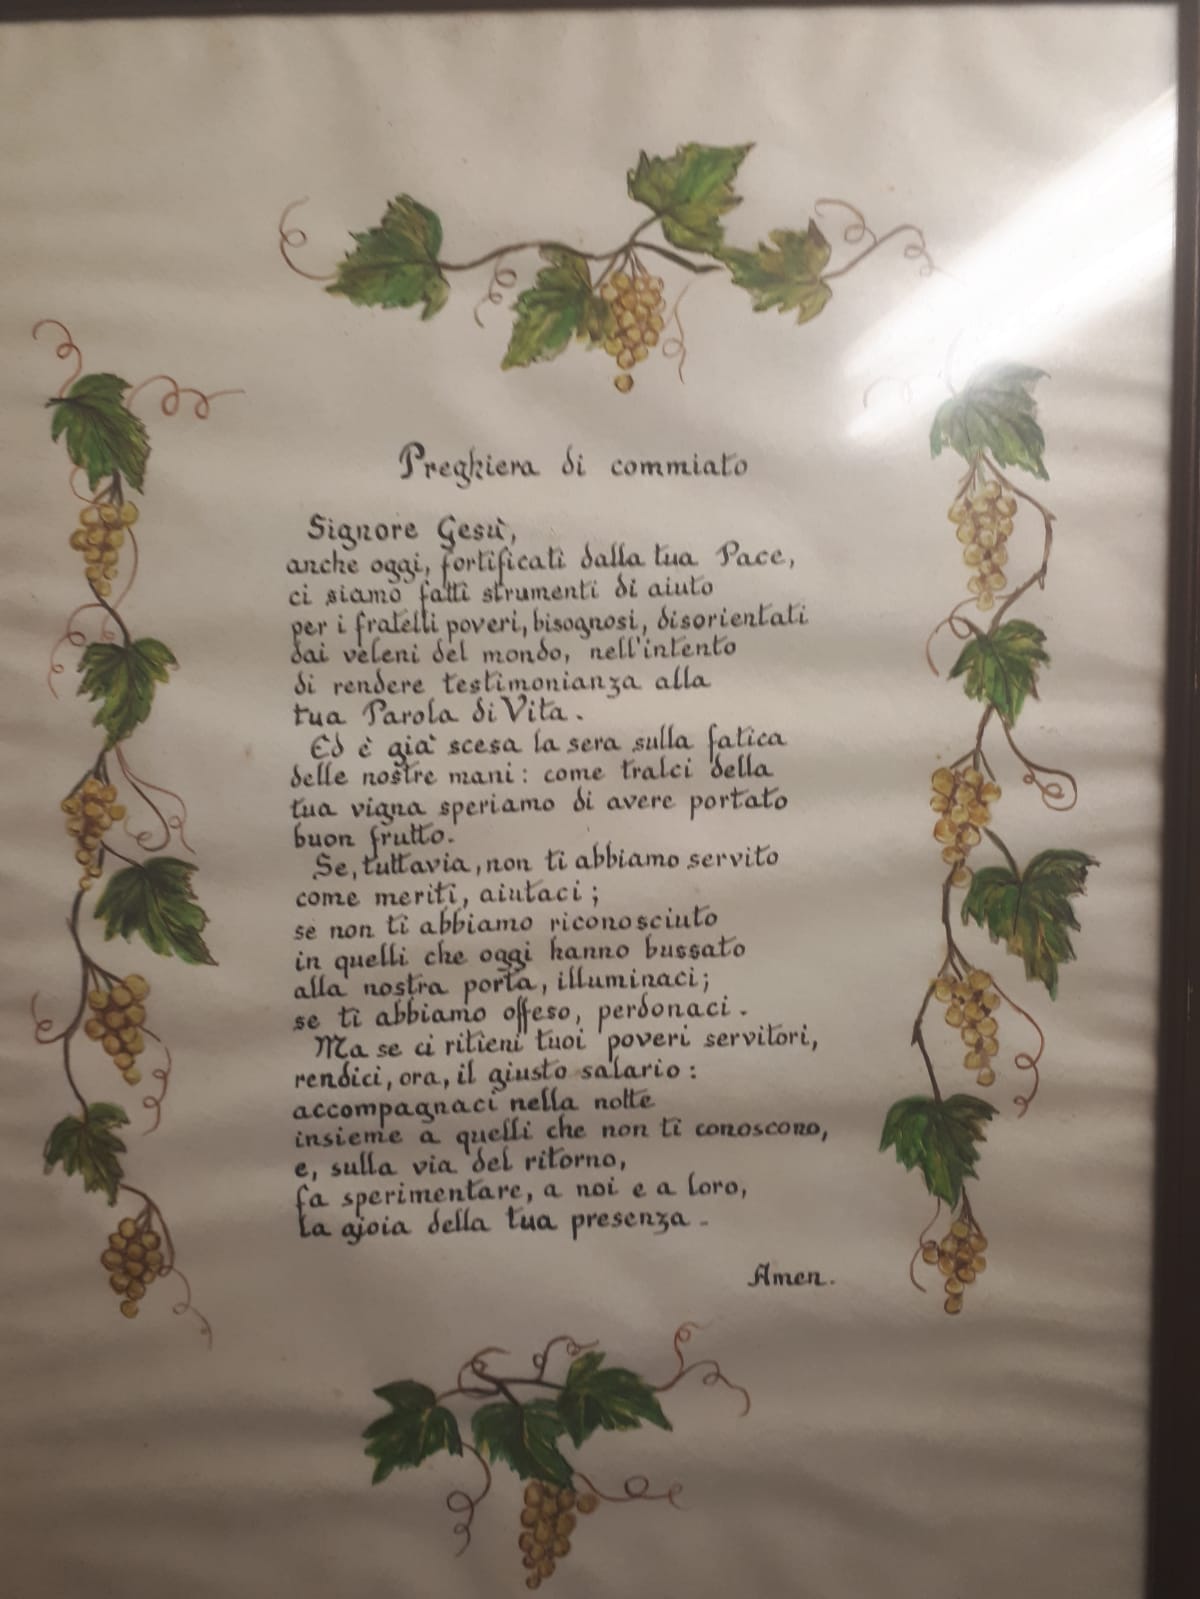 Preghiera di commiato
Signore Gesù,
anche oggi, fortificati dalla tua Pace,
ci siamo fatti strumenti di aiuto
per i fratelli poveri, bisognosi, disorientati
dai veleni del mondo, nell'intento
di rendere testimonianza alla
tua Parola di Vita.
Ed è già scesa la sera sulla fatica
delle nostre mani: come tralci della
tua vigna speriamo di avere portato
buon frutto.
Se, tuttavia, non ti abbiamo servito
come meriti, aiutaci;
se non ti abbiamo riconosciuto
in quelli che oggi hanno bussato
alla nostra porta, illuminaci;
se ti abbiamo offeso, perdonaci.
Ma se ci ritieni tuoi poveri servitori,
rendici, ora, il giusto salario:
accompagnaci nella notte
insieme a quelli che non ti conoscono,
e, sulla via del ritorno,
fa sperimentare, a noi e a loro,
la gioia della tua presenza.
Amen.